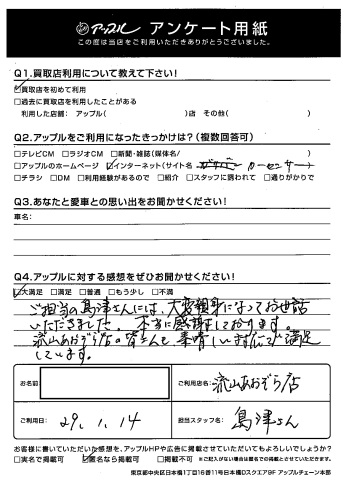 アップル アンケート用紙
この度は当店をご利用いただきありがとうございました。
Q1.買取店利用について教えて下さい!
☑買取店を初めて利用
□過去に買取店を利用したことがある
利用した店舗: アップル( )店 その他( )
Q2.アップルをご利用になったきっかけは?(複数回答可)
□テレビCM □ラジオCM □新聞・雑誌(媒体名/ )
□アップルのホームページ ☑インターネット(サイト名 カーセンサー)
□チラシ □DM □利用経験があるので □紹介 □スタッフに誘われて □通りがかりで
Q3.あなたと愛車との思い出をお聞かせください!
車名:
Q4.アップルに対する感想をぜひお聞かせください!
☑大満足 □満足 □普通 □もう少し □不満
ご担当の島津さんには、大変親身になってお世話
いただきました。本当に感謝しております。
流山あおぞら店の皆さんも素晴しい対応で満足
しています。
お名前
ご利用店名: 流山あおぞら店
ご利用日: 29.1.14
担当スタッフ名: 島津さん
お客様に書いていただいた感想を、アップルHPや広告に掲載させていただいてもよろしいでしょうか?
□実名で掲載可 ☑匿名なら掲載可 □掲載不可 ※ご記入がない場合は匿名での掲載とさせていただきます。
東京都中央区日本橋1丁目16番11号日本橋Dスクエア9F アップルチェーン本部